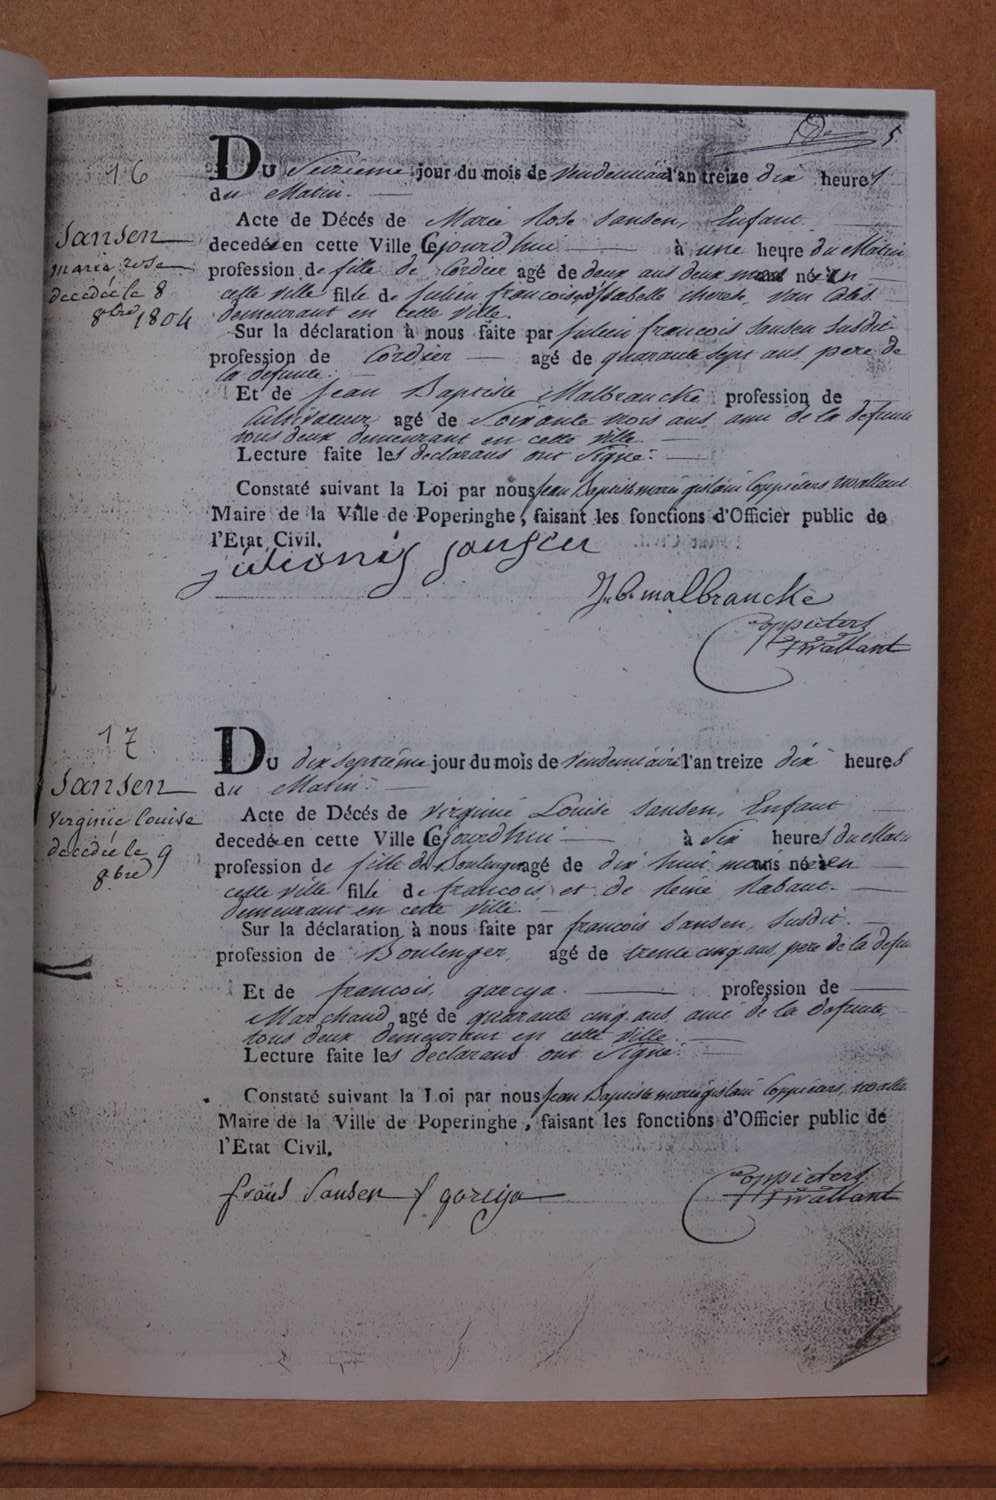 5.
16
Du Seizieme jour du mois de Vendemiaire l'an treize dix heures
du Matin.
Acte de Décés de Marie Rose Sansen, Enfant
decedée en cette Ville Cejourdhui à une heure du Matin
profession de fille de Cordier agé de deux ans deux mois née en
cette ville fille de Julien francois et Isabelle therese van
demeurant en cette ville.
Sur la déclaration à nous faite par Julien francois Sansen Susdit
profession de Cordier agé de quarante sept ans pere de
la defunte.
Et de Jean Baptiste Malbrancke profession de
Cultivateur agé de Soixante trois ans, ami de la defunte
tous deux demeurant en cette ville
Lecture faite les declarans ont Signé.
Constaté suivant la Loi par nous Jean Baptiste marie gislain Coppieters wallant
Maire de la Ville de Poperinghe, faisant les fonctions d'Officier public de
l'Etat Civil.
Sansen
maria rosa
decedée le 8
8bre 1804
J. B. malbrancke
Coppieters
wallant
17
Du dix septieme jour du mois de Vendemiaire l'an treize dix heures
du Matin.
Acte de Décés de Virginie Louise Sansen, Enfant
decedée en cette Ville Cejourdhui à Six heures du Matin
profession de fille de Boulenger agé de dix huit mois née en
cette ville fille de francois et de Reine
demeurant en cette ville.
Sur la déclaration à nous faite par francois Sansen, Susdit.
profession de Boulenger, agé de trente cinq ans, pere de la defu
Et de francois, garcya. profession de
Marchand agé de quarante cinq ans, ami de la defunte,
tous deux demeurant en cette ville
Lecture faite les declarans ont Signé.
Constaté suivant la Loi par nous Jean Baptiste marie gislain Coppieters, walla
Maire de la Ville de Poperinghe, faisant les fonctions d'Officier public de
l'Etat Civil.
Sansen
Virginie louise
decedée le 9
8bre
frans Sansen f garcya
Coppieters
wallant